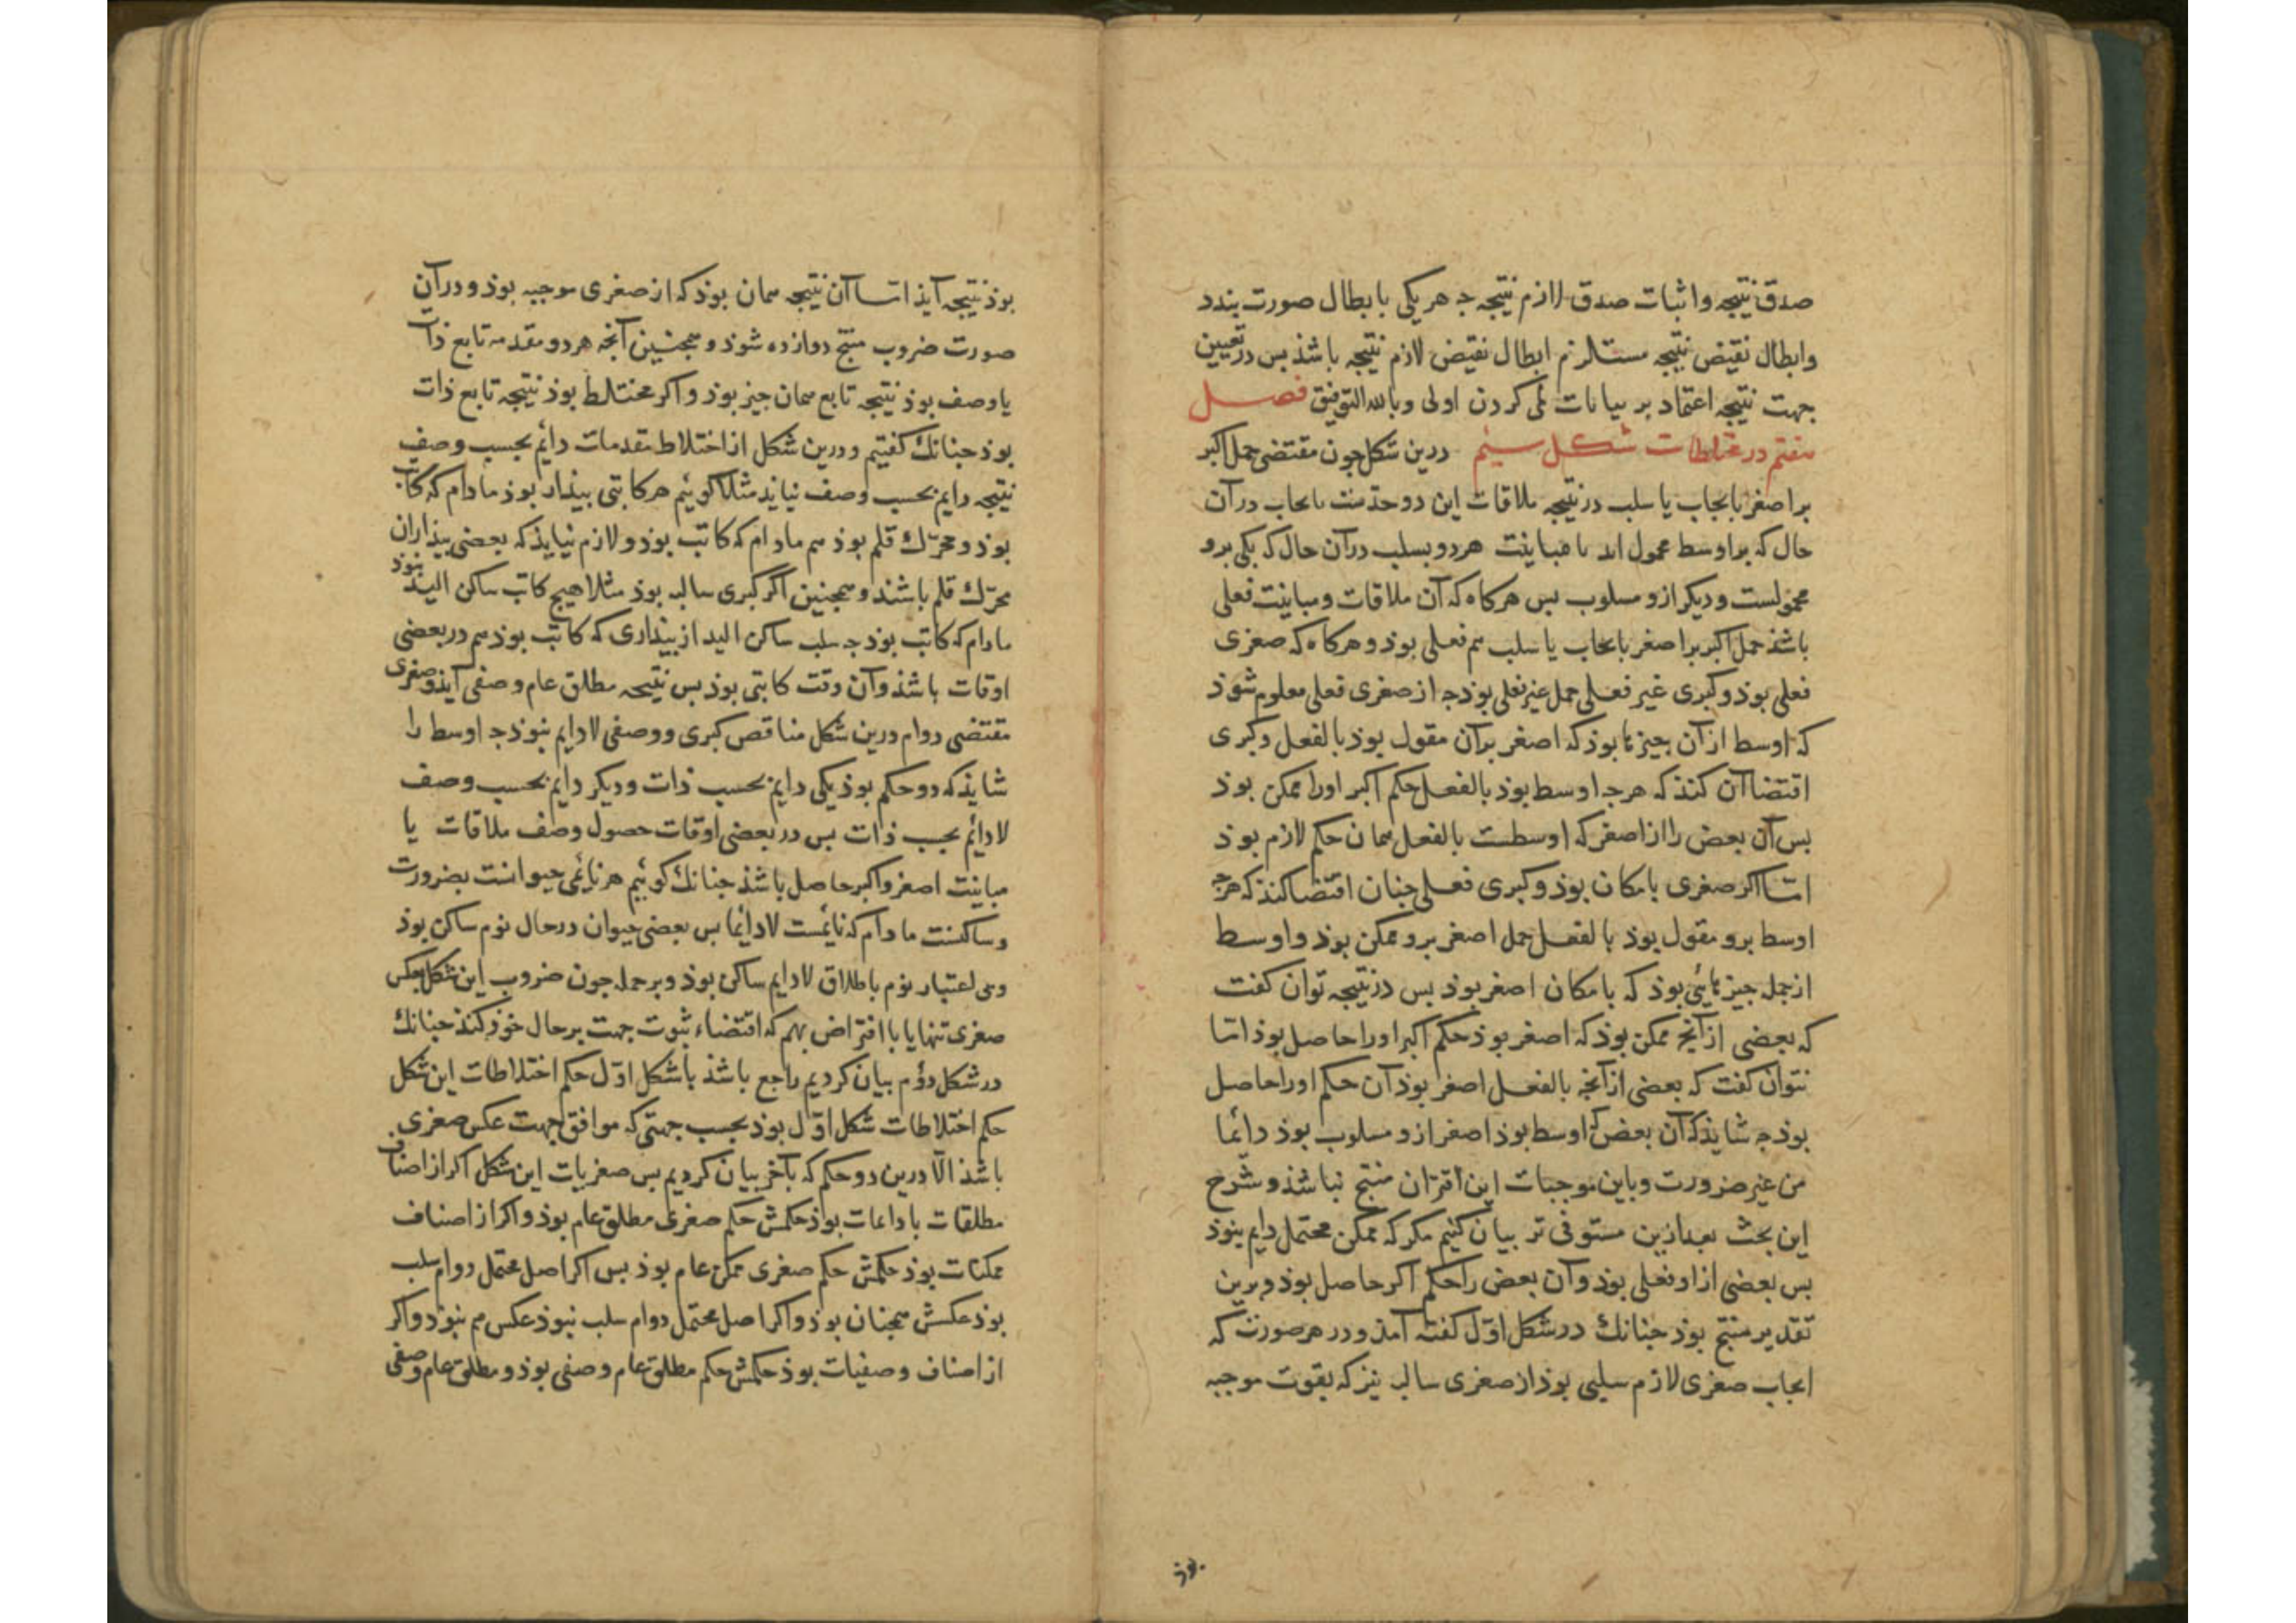 صدق نتیجه و اثبات صدق لازم نتیجه جه هر یکی بابطال صورت بندد
وابطال نقیض نتیجه مستلزم ابطال نقیض لازم نتیجه باشذ بس در تعیین
جهت نتیجه اعتماد بر بیانات لمی کردن اولی وبالله التوفیق فصل
هفتم در مختلطات شکل سیئم درین شکل جون مقتضی حمل اکبر
بر اصغر بایجاب یا سلب در نتیجه ملاقات این دو حدست بایجاب در آن
حال که بر اوسط محمول اند یا مباینت هر دو بسلب در آن حال که یکی برو
محمولست ودیکر ازو مسلوب بس هرکاه که آن ملاقات ومباینت فعلی
باشذ حمل اکبر بر اصغر بایجاب یا سلب هم فعلی بوذ و هرکاه که صغری
فعلی بوذ وکبری غیر فعلی حمل غیر فعلی بوذ جه از صغری فعلی معلوم شوذ
که اوسط از آن جیزها بوذ که اصغر بر آن مقول بوذ بالفعل وکبری
اقتضا آن کنذ که هرجه اوسط بوذ بالفعل حکم اکبر اورا ممکن بوذ
بس آن بعض را از اصغر که اوسطست بالفعل همان حکم لازم بوذ
اما اکر صغری بامکان بوذ وکبری فعلی جنان اقتضا کنذ که هرجه
اوسط برو مقول بوذ بالفعل حمل اصغر برو ممکن بوذ و اوسط
از جمله جیزهائی بوذ که بامکان اصغر بوذ بس در نتیجه توان کفت
که بعضی از آنجه ممکن بوذ که اصغر بوذ حکم اکبر اورا حاصل بوذ اما
نتوان کفت که بعضی از آنجه بالفعل اصغر بوذ آن حکم اورا حاصل
بوذ جه شایذ که آن بعض که اوسط بوذ اصغر ازو مسلوب بوذ دائما
من غیر ضرورت وباین موجبات این اقتران منتج نباشذ و شرح
این بحث بعد ازین مستوفی تر بیان کنیم مکر که ممکن محتمل دایم نبوذ
بس بعضی ازو فعلی بوذ وآن بعض را حکم اکبر حاصل بوذ وبرین
تقدیر منتج بوذ جنانك در شکل اول کفته آمذ و در هر صورت که
ایجاب صغری لازم سلبی بوذ از صغری سالبه نیز که بقوت موجبه
بوذ
بوذ نتیجه آیذ اما آن نتیجه همان بوذ که از صغری موجبه بوذ و در آن
صورت ضروب منتج دوازده شوذ و همجنین آنجه هر دو مقدمه تابع ذات
یا وصف بوذ نتیجه تابع همان جیز بوذ واکر مختلط بوذ نتیجه تابع ذات
بوذ جنانك کفتیم و درین شکل از اختلاط مقدمات دائم بحسب وصف
نتیجه دایم بحسب وصف نیاید مثلا کوئیم هر کاتبی بیذار بوذ مادام که کاتب
بوذ و محرّك قلم بوذ هم مادام که کاتب بوذ و لازم نیایذ که بعضی بیذاران
محرّك قلم باشند و همجنین اکر کبری سالبه بوذ مثلا هیج کاتب ساکن الید نبوذ
مادام که کاتب بوذ جه سلب ساکن الید از بیذاری که کاتب بوذ هم در بعضی
اوقات باشذ وآن وقت کاتبی بوذ بس نتیجه مطلق عام وصفی آیذ وصغری
مقتضی دوام درین شکل مناقض کبری ووصفی لادایم نبوذ جه اوسط را
شایذ که دو حکم بوذ یکی دایم بحسب ذات و دیکر دایم بحسب وصف
لادائم بحسب ذات بس در بعضی اوقات حصول وصف ملاقات یا
مباینت اصغر و اکبر حاصل باشذ جنانك کوئیم هر نائمی حیوانست بضرورت
وساکنست مادام که نائمست لادائما بس بعضی حیوان در حال نوم ساکن بوذ
وبی اعتبار نوم باطلاق لادایم ساکن بوذ و برجمله جون ضروب این شکل بعکس
صغری تنها یا با افتراض بهم که اقتضاء ثبوت جهت بر حال خوذ کنذ جنانك
در شکل دوّم بیان کردیم راجع باشذ با شکل اوّل حکم اختلاطات این شکل
حکم اختلاطات شکل اوّل بوذ بحسب جهتی که موافق جهت عکس صغری
باشذ الّا درین دو حکم که بآخر بیان کردیم بس صغریات این شکل اکر از اصناف
مطلقات یا دایمات بوذ حکمش حکم صغری مطلق عام بوذ و اکر از اصناف
ممکنات بوذ حکمش حکم صغری ممکن عام بوذ بس اکر اصل محتمل دوام سلب
بوذ عکسش همجنان بوذ و اکر اصل محتمل دوام سلب نبوذ عکس هم نبوذ و اکر
از اصناف وصفیات بوذ حکمش حکم مطلق عام وصفی بوذ و مطلق عام وصفی